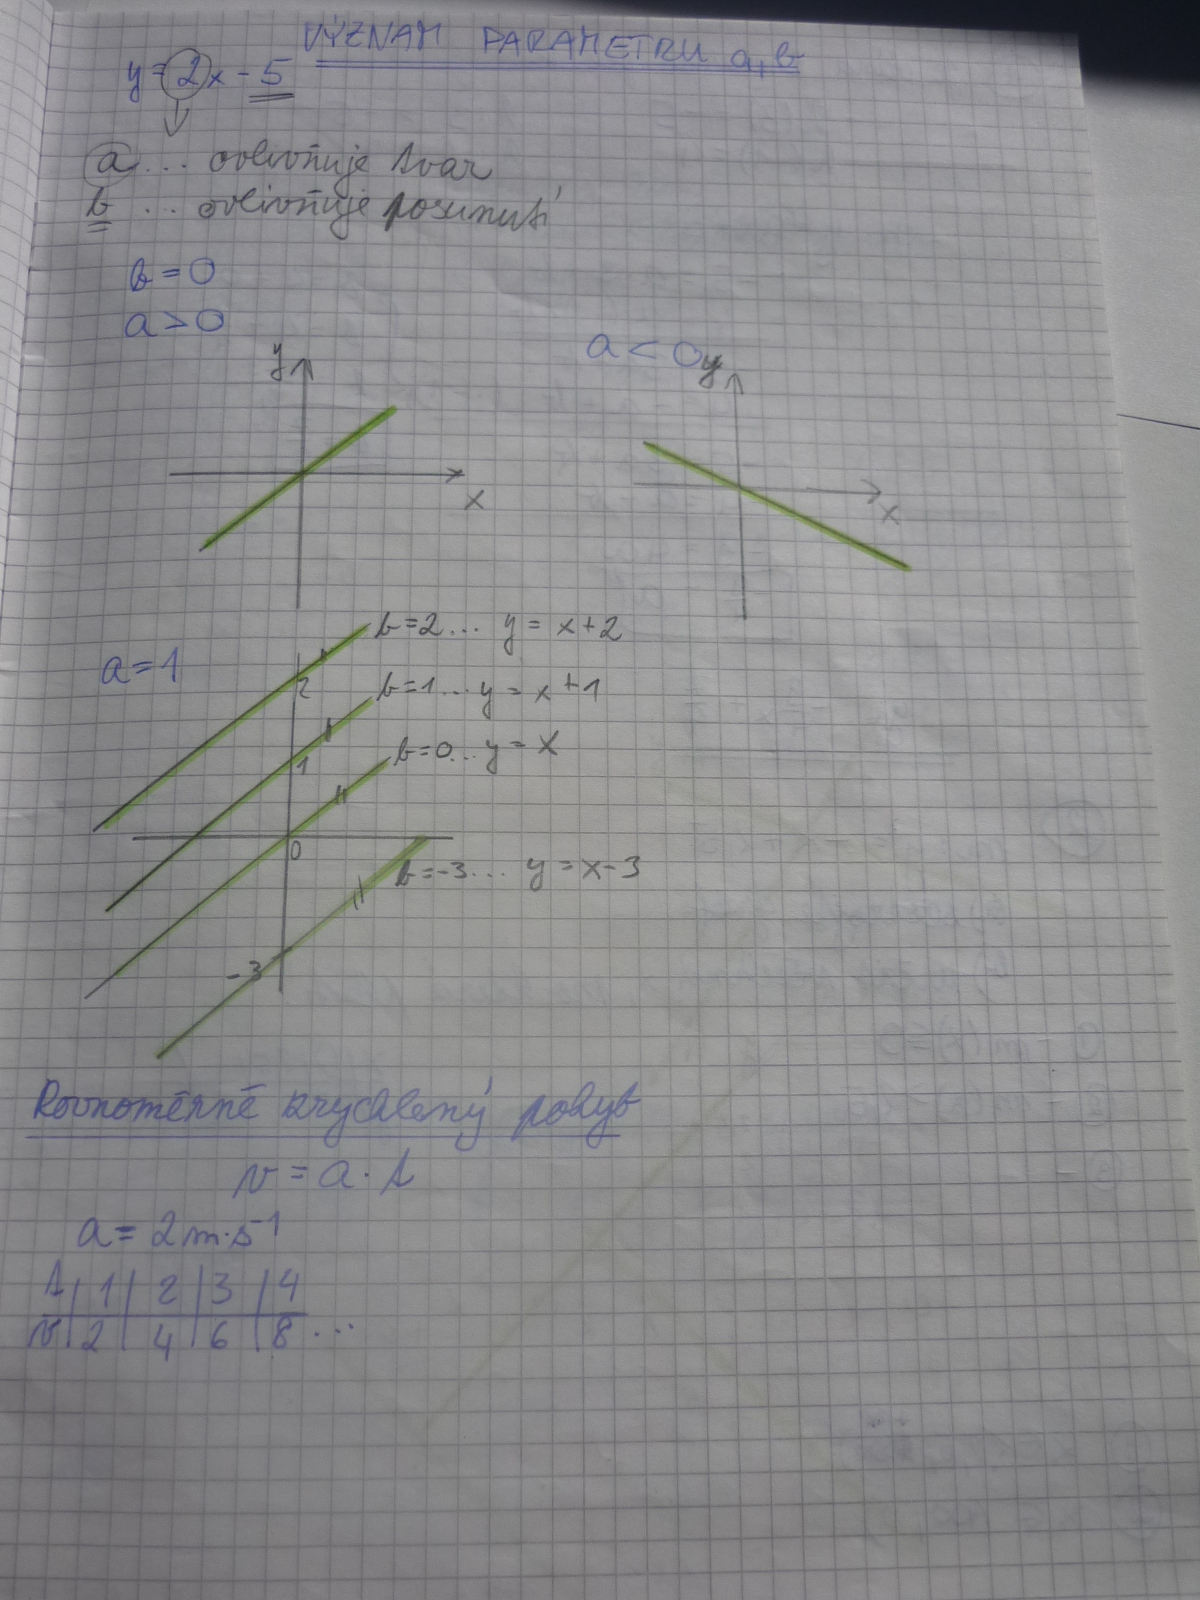 VÝZNAM PARAMETRU a, b
y = 2x - 5
a ... ovlivňuje tvar
b ... ovlivňuje posunutí
b = 0
a > 0
a < 0
y
y
x
x
b=2... y = x+2
a=1
2
b=1... y = x+1
b=0... y = x
1
0
b=-3... y = x-3
-3
Rovnoměrně zrychlený pohyb
v = a · t
a = 2m·s-1
t | 1 | 2 | 3 | 4
v | 2 | 4 | 6 | 8 ...